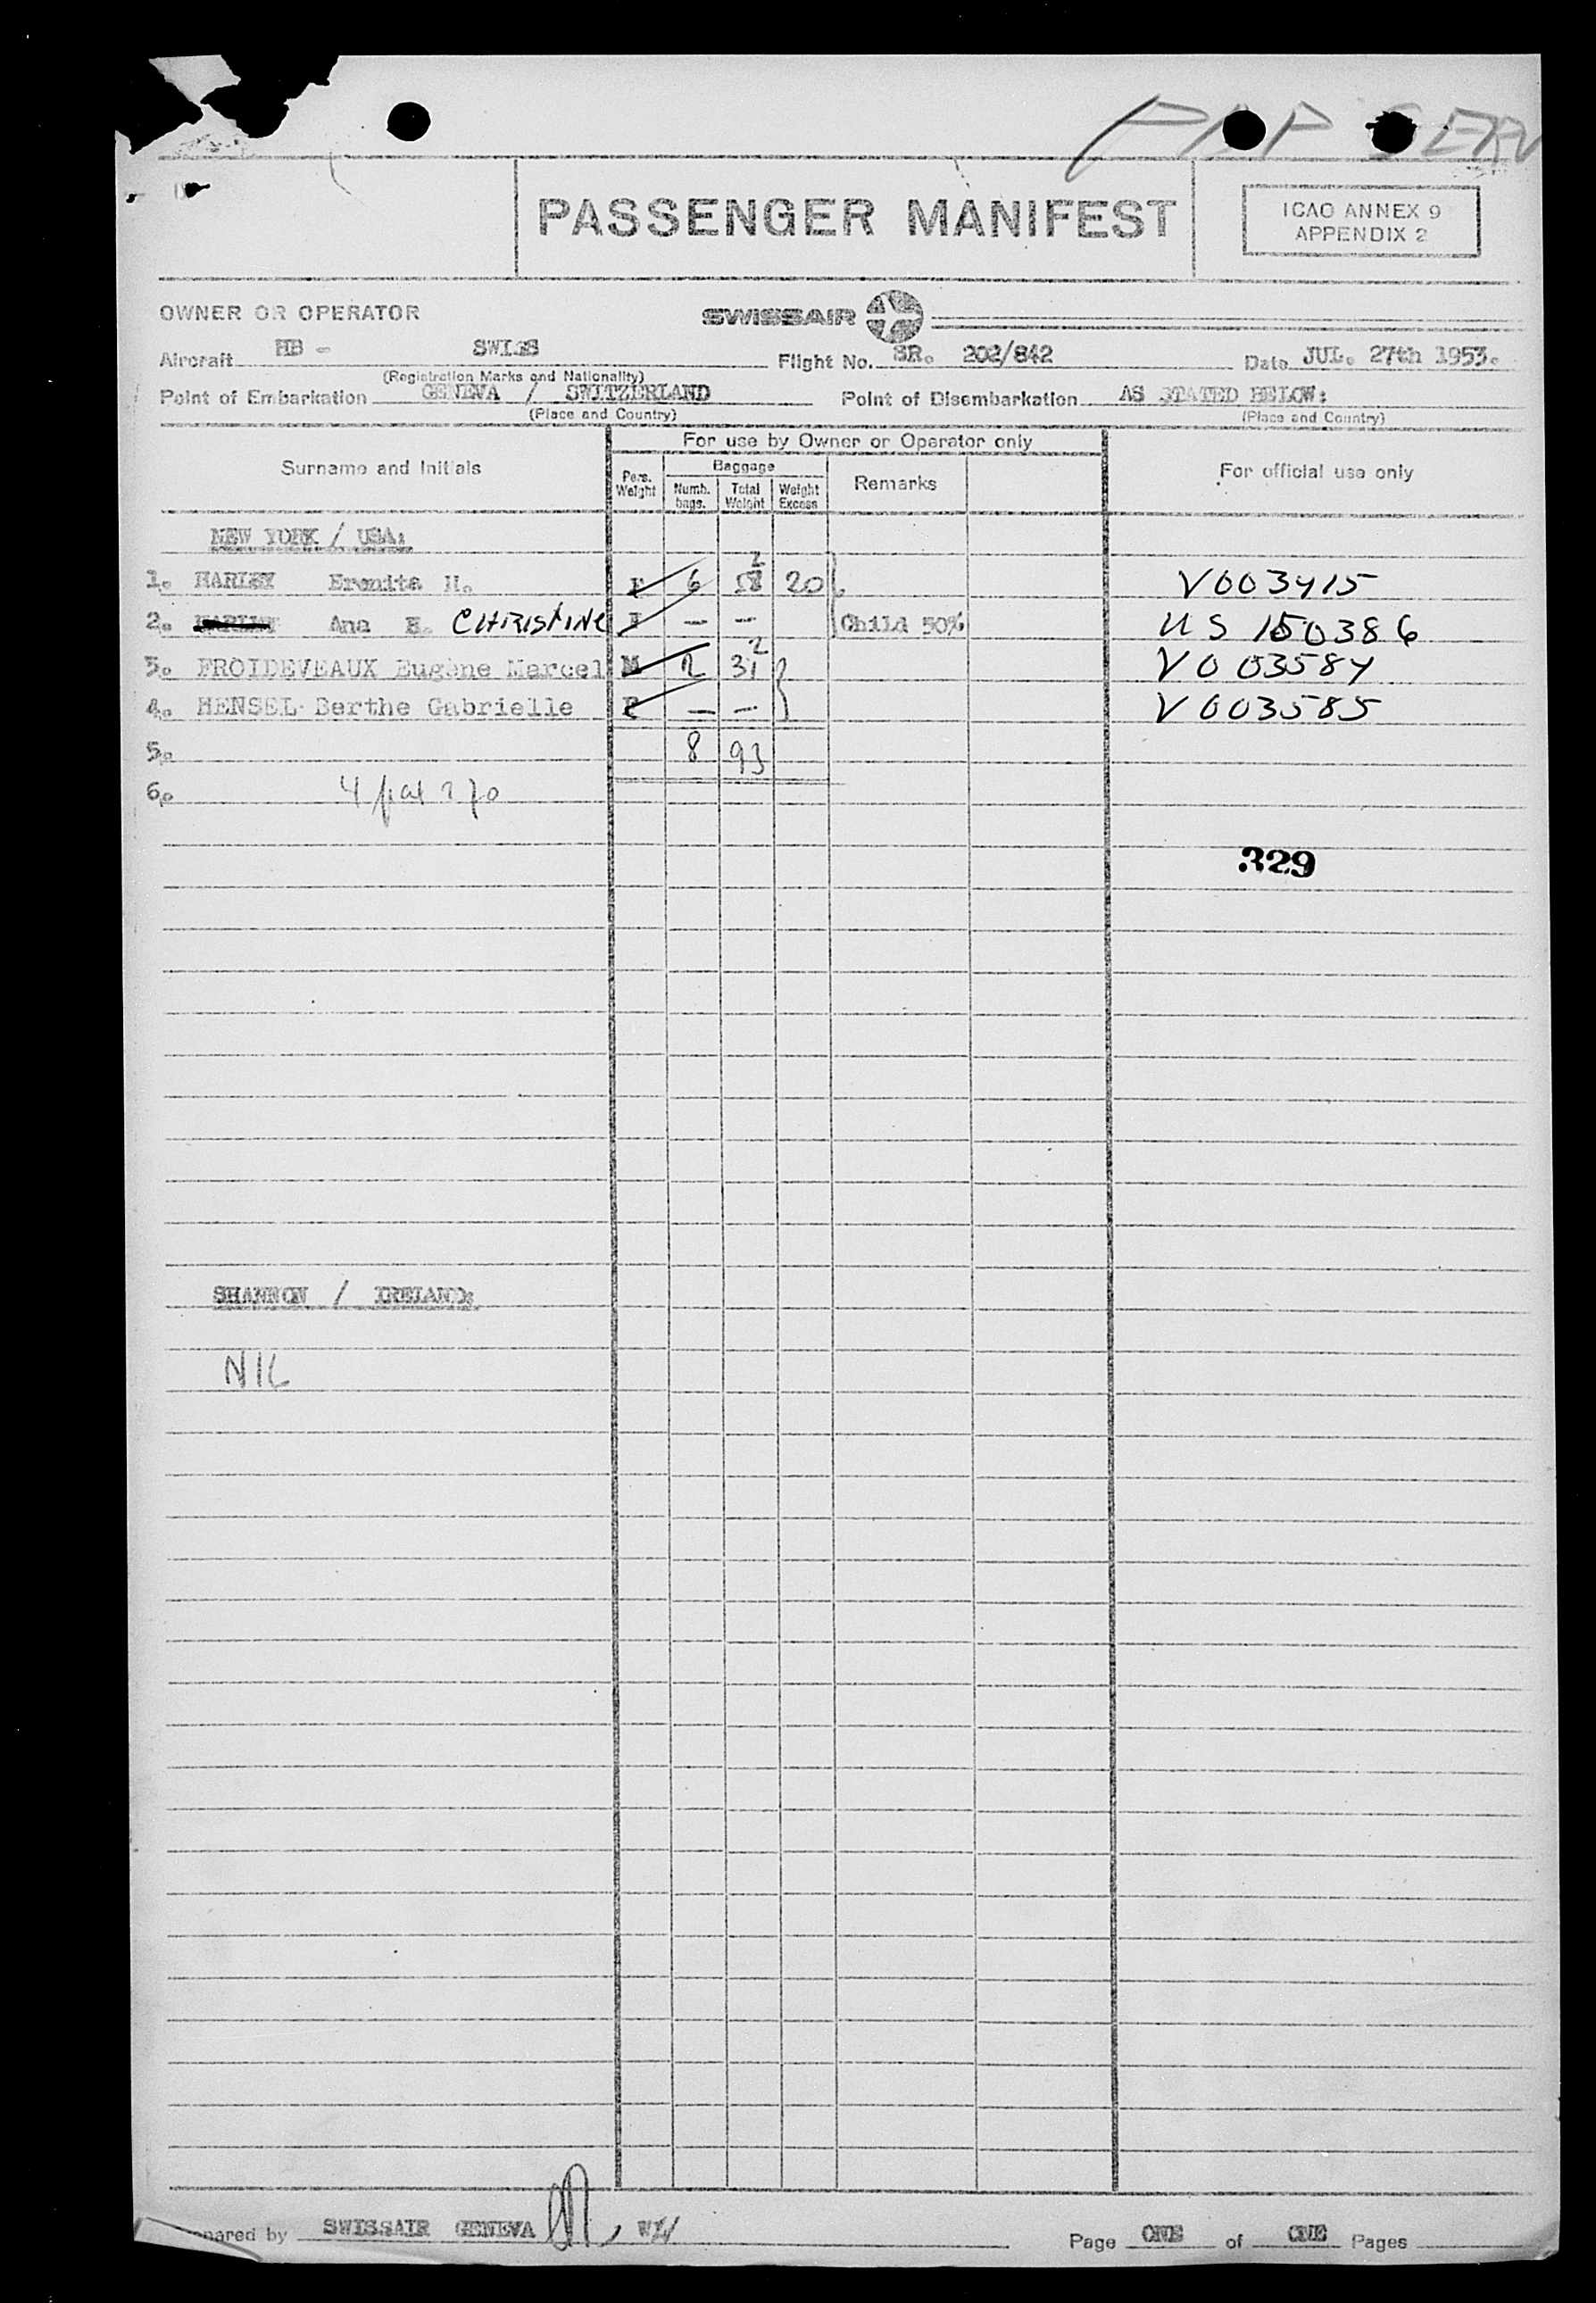 PAP SERV
PASSENGER MANIFEST
ICAO ANNEX 9
APPENDIX 2
OWNER OR OPERATOR SWISSAIR
Aircraft HB - SWISS Flight No. SR. 202/842 Date JUL. 27th 1953.
(Registration Marks and Nationality)
Point of Embarkation GENEVA / SWITZERLAND Point of Disembarkation AS STATED BELOW:
(Place and Country) (Place and Country)
For use by Owner or Operator only
Surname and Initials Pers. Weight Baggage Remarks For official use only
Numb. bags. Total Weight Weight Excess
NEW YORK / USA:
1. HARLEY Ermita H. F 6 20 V003415
2. Ana E. CHRISTINE F — — Child 50% US 150386
3. FROIDEVEAUX Eugène Marcel M 2 31 2 V003584
4. HENSEL Berthe Gabrielle F — — V003585
5. 8 93
6. 4 270
329
SHANNON / IRELAND:
NIL
Prepared by SWISSAIR GENEVA Page ONE of ONE Pages